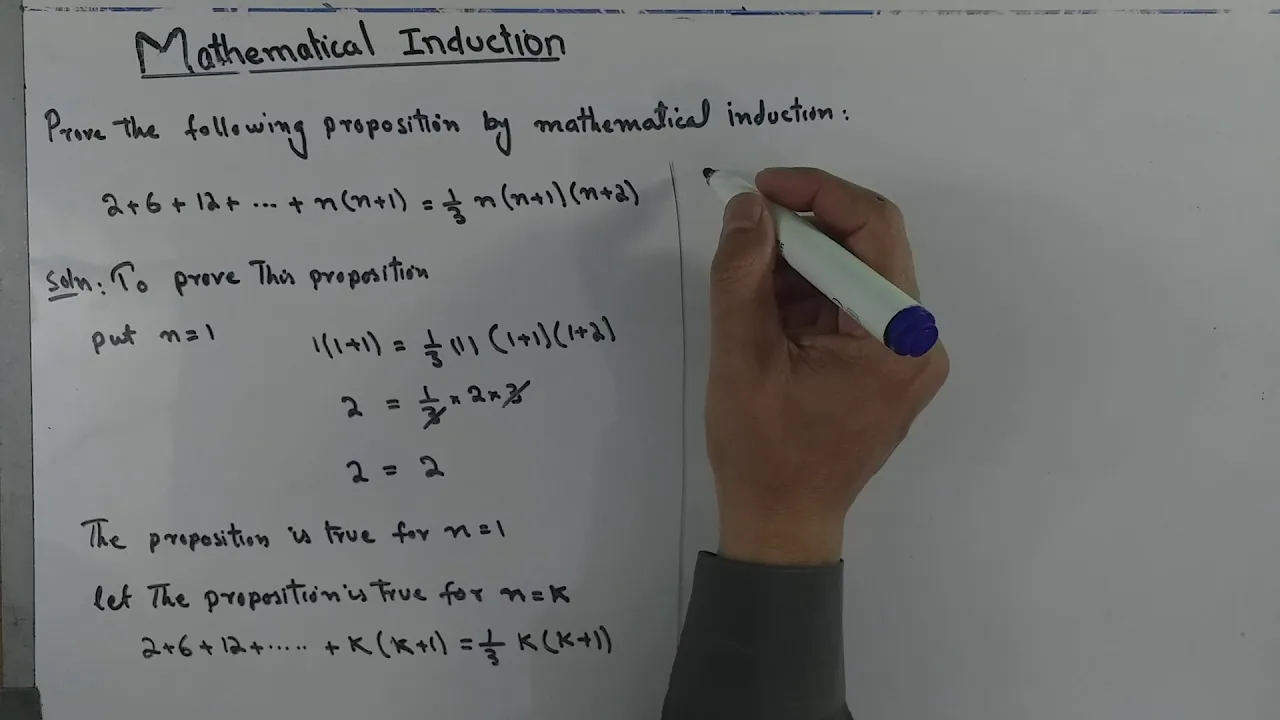 Mathematical Induction
Prove the following proposition by mathematical induction:
2+6+12+ ... + n(n+1) = 1/3 n(n+1)(n+2)
Soln: To prove This proposition
put n=1 1(1+1) = 1/3 (1) (1+1)(1+2)
2 = 1/3 × 2 × 3
2 = 2
The proposition is true for n=1
let The proposition is true for n=K
2+6+12+..... + K(K+1) = 1/3 K(K+1)